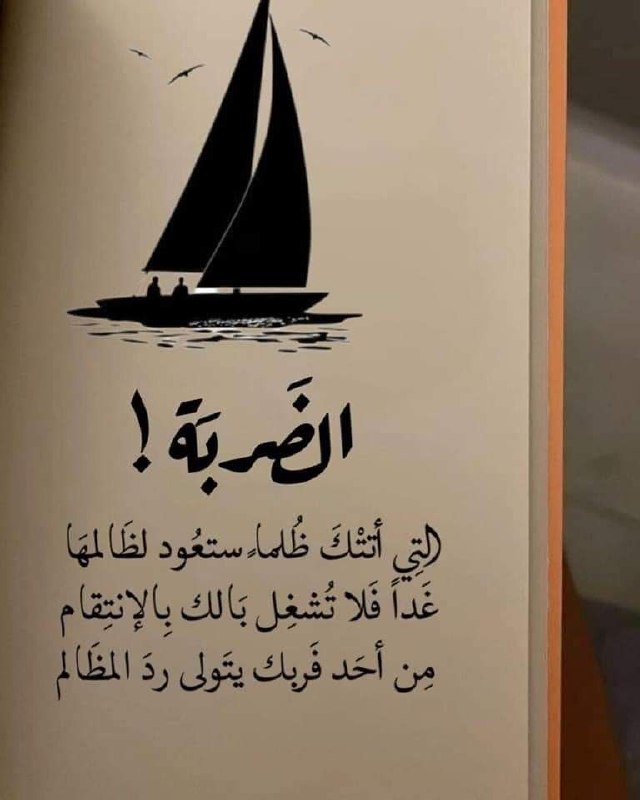 الضَربَة !
التِي أتتْكَ ظُلماً ستعُود لظَالمهَا
غَداً فَلا تُشغِل بَالك بِالإنتِقام
مِن أحَد فَربك يتَولى ردَ المظَالم